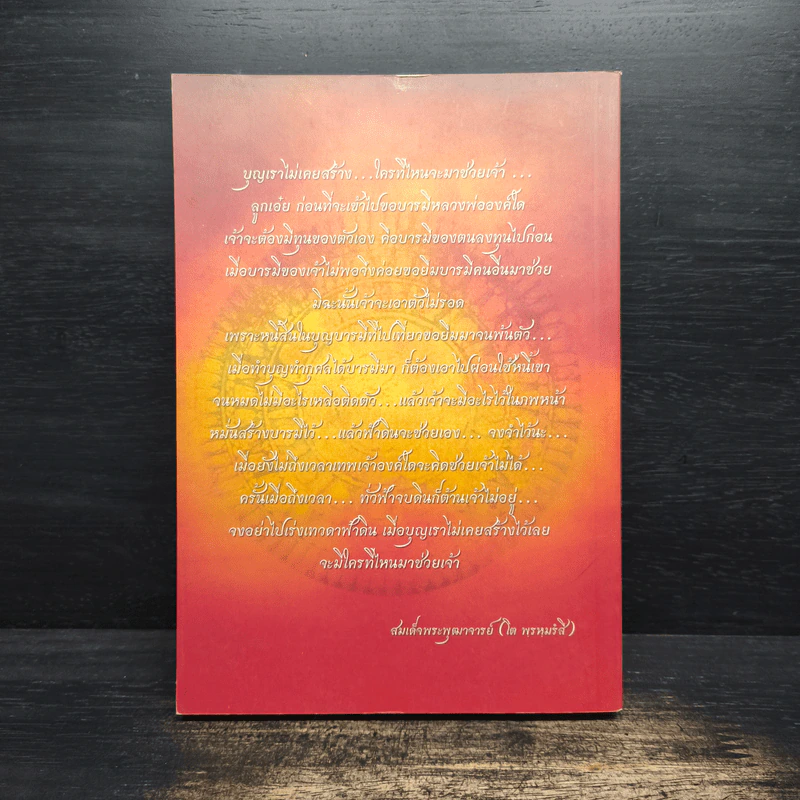 บุญเราไม่เคยสร้าง...ใครที่ไหนจะมาช่วยเจ้า ...
ลูกเอ๋ย ก่อนที่จะเข้าไปขอบารมีหลวงพ่อองค์ใด
เจ้าจะต้องมีทุนของตัวเอง คือบารมีของตนลงทุนไปก่อน
เมื่อบารมีของเจ้าไม่พอจึงค่อยขอยืมบารมีคนอื่นมาช่วย
มิฉะนั้นเจ้าจะเอาตัวไม่รอด
เพราะหนี้สินในบุญบารมีที่ไปเที่ยวขอยืมมาจนพ้นตัว...
เมื่อทำบุญทำกุศลได้บารมีมา ก็ต้องเอาไปผ่อนใช้หนี้เขา
จนหมดไม่มีอะไรเหลือติดตัว...แล้วเจ้าจะมีอะไรไว้ในภพหน้า
หมั่นสร้างบารมีไว้...แล้วฟ้าดินจะช่วยเอง... จงจำไว้นะ...
เมื่อยังไม่ถึงเวลาเทพเจ้าองค์ใดจะคิดช่วยเจ้าไม่ได้...
ครั้นเมื่อถึงเวลา... ทั่วฟ้าจบดินก็ต้านเจ้าไม่อยู่...
จงอย่าไปเร่งเทวดาฟ้าดิน เมื่อบุญเราไม่เคยสร้างไว้เลย
จะมีใครที่ไหนมาช่วยเจ้า
สมเด็จพระพุฒาจารย์ (โต พฺรหฺมรํสี)